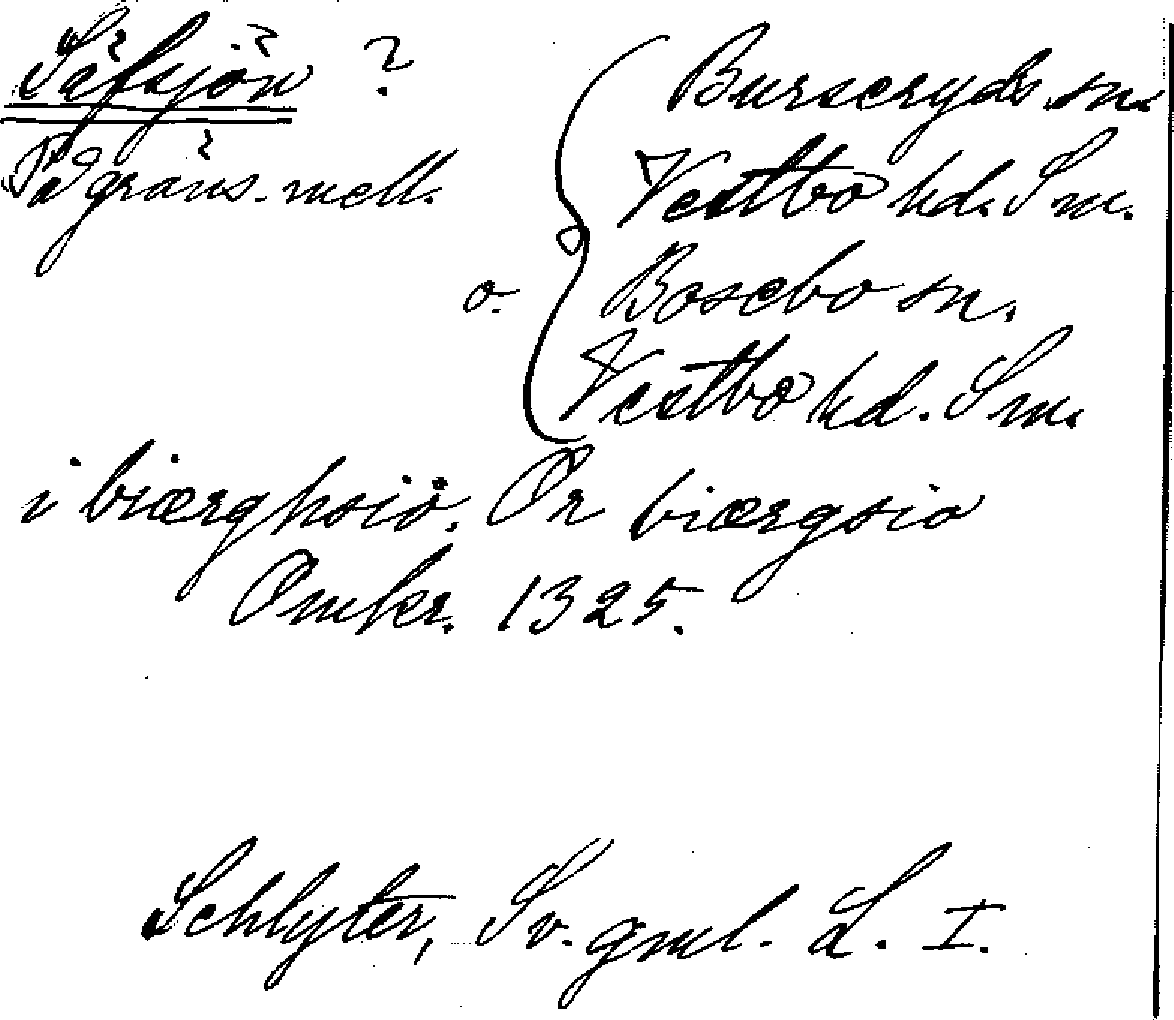 Säfsjön ?
På gräns. mell.
Burseryds sn.
Vestbo hd. Sm.
o.
Bosebo sn.
Vestbo hd. Sm.
i biærghsiö. Or biærgsio
Omkr. 1325.
Schlyter, Sv. gml. L. I.